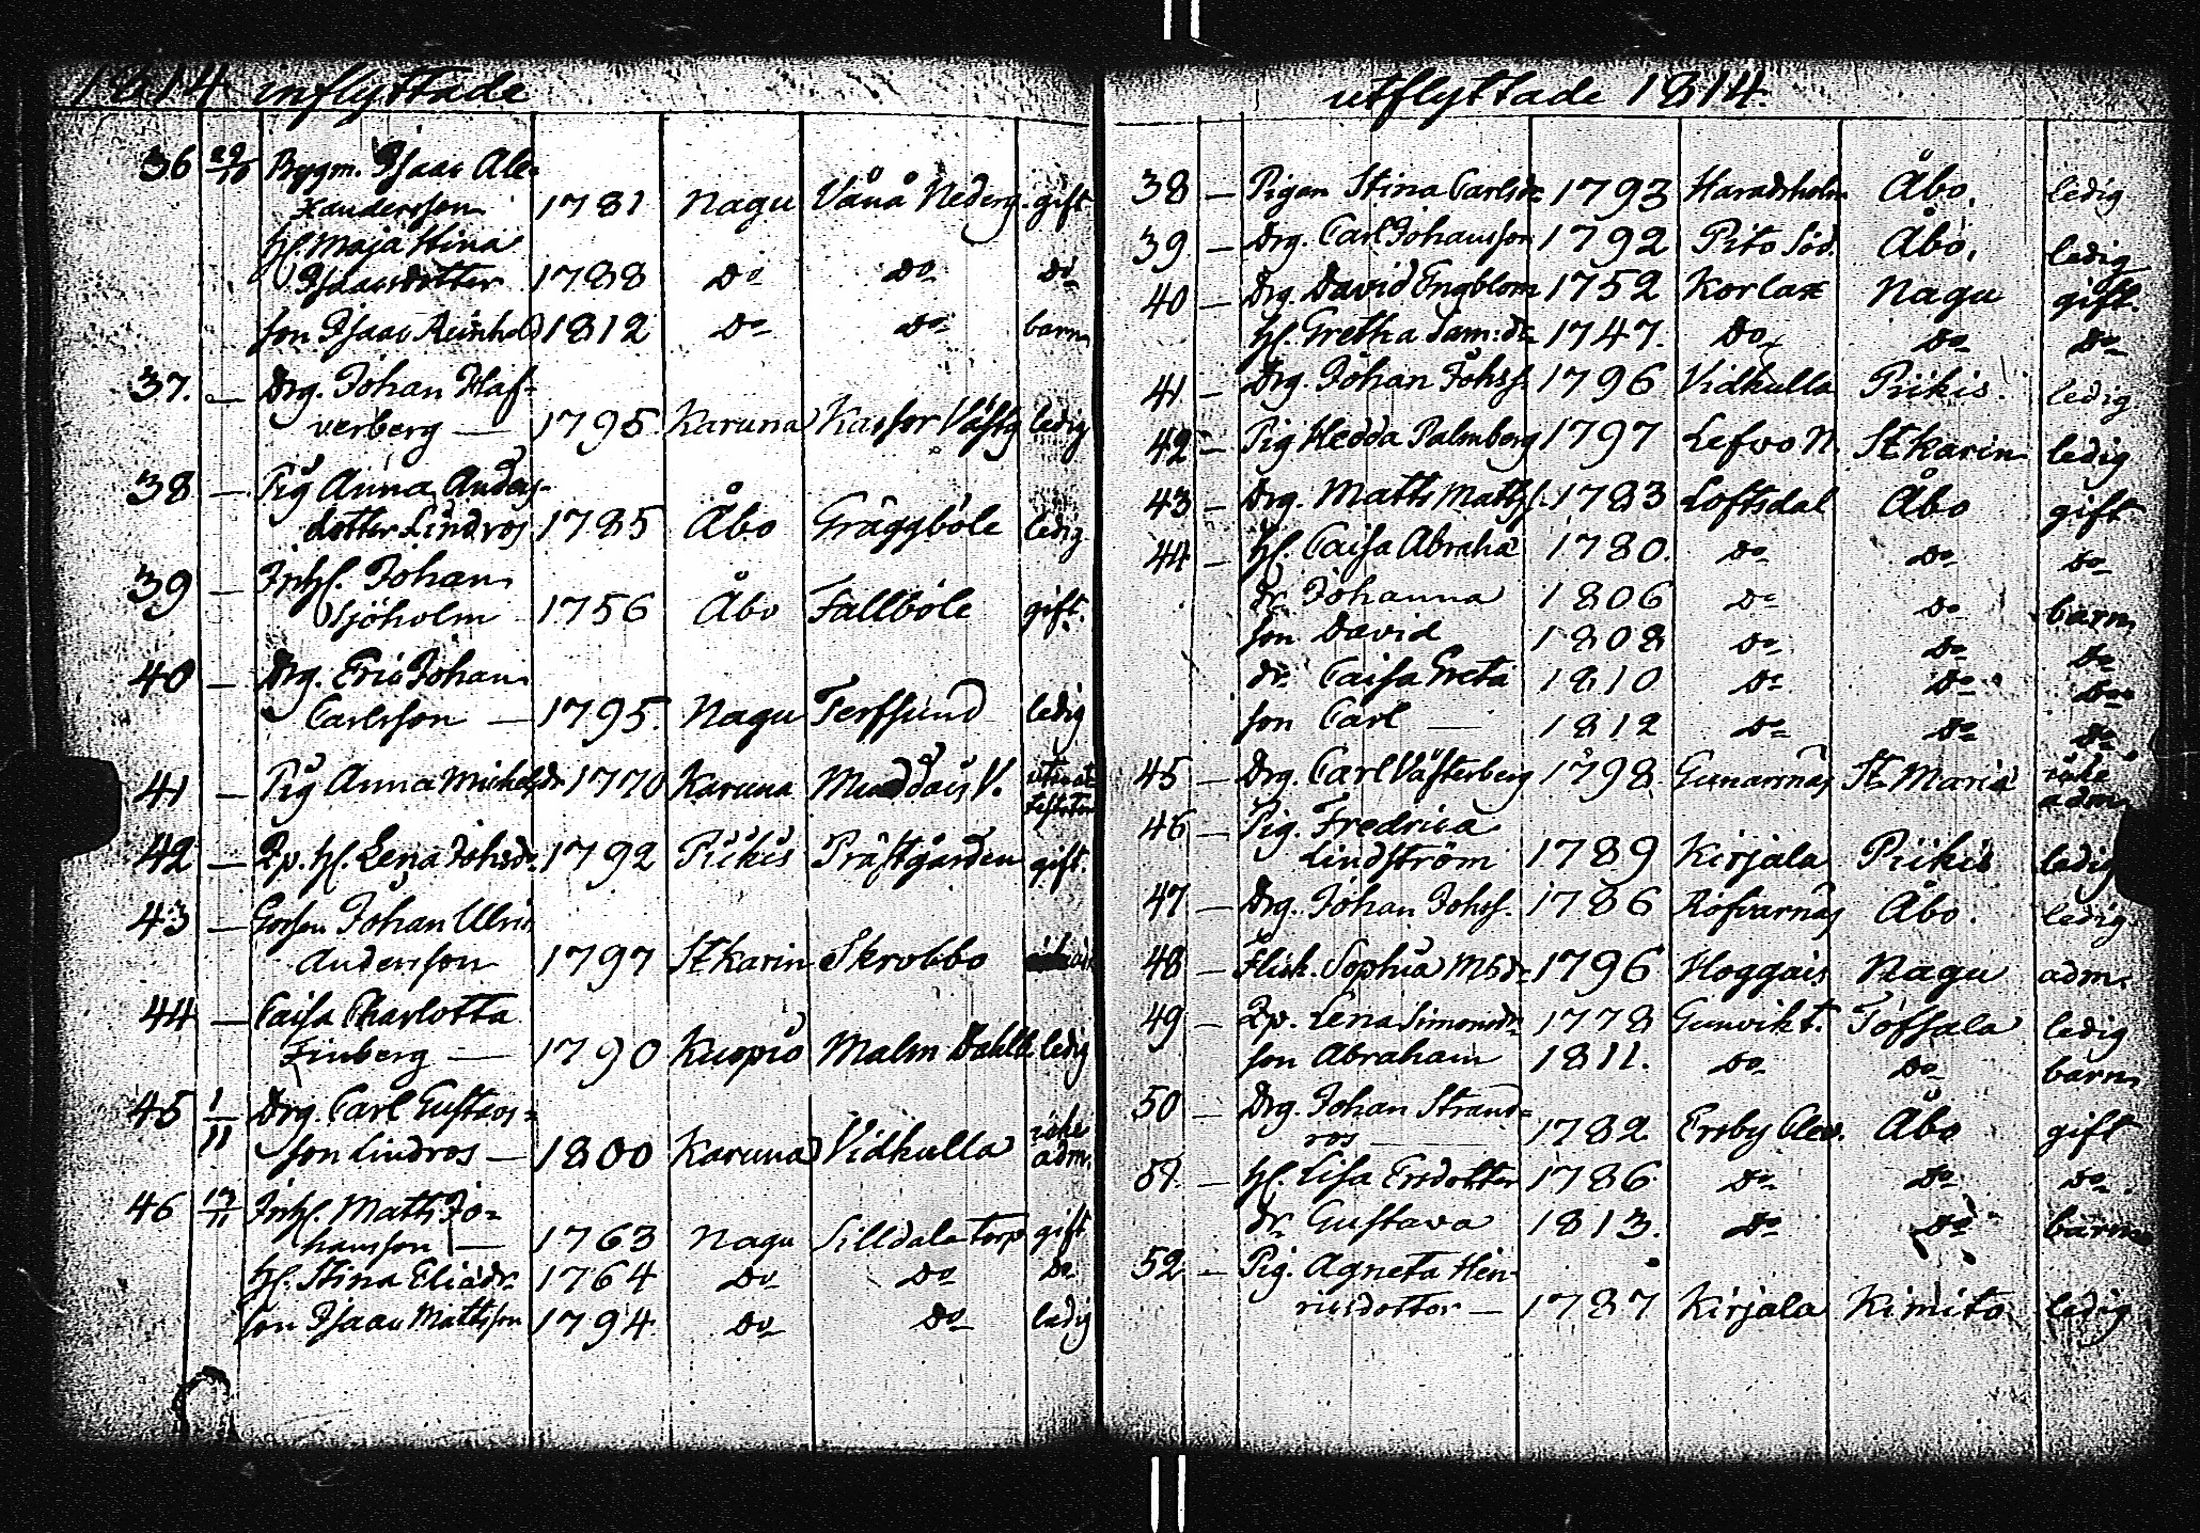 1814 inflyttade
36 29/10 Bygm. Isaac Ale-
xandersson 1781 Nagu Vånå Nederg. gift
H. Maja Stina
Isaacsdotter 1788 Do Do Do
son Isaac Reinhold 1812 Do Do barn
37. — Drg. Johan Haf-
verberg — 1795. Karuna Kassor Västg ledig
38 — Pig Anna Anders-
dotter Lindros 1785 Åbo Gräggböle ledig
39 — Inh. Johan
Sjöholm 1756 Åbo Fallböle gift.
40 — Drg. Eric Johan
Carlsson — 1795. Nagu Terfsund ledig
41 — Pig Anna Michelsdr 1770 Karuna Muddais V.
42 — Hu. Lena Johsdr 1792 Piikis Prästgården gift.
43 — Gossen Johan Ulric
Andersson 1797 St Karin Skrobbo
44 — Caisa Charlotta
Finberg — 1790 Kuopio Malm Dahlb. ledig
45 1/11 Drg. Carl Gustavs-
son Lindros — 1800 Karuna Vidkulla icke adm.
46 17/11 Inh. Matts Jo-
hansson — 1763 Nagu Silldala torp gift
H. Stina Eliædr. 1764 Do Do Do
son Isaac Mattsson 1794. Do Do ledig
utflyttade 1814.
38 — Pigan Stina Carlsdr 1793 Haradsholm Åbo. ledig
39 — Drg. Carl Johansson 1792 Pito Söd. Åbo. ledig
40 — Drg. David Engblom 1752 Korlax Nagu gift.
H. Gretha Sam:dr 1747. Do Do Do
41 — Drg. Johan Johss. 1796 Vidkulla Piikis. ledig
42 — Pig Hedda Palmberg 1797 Lefvo N. St Karin ledig
43 — Drg. Matts Mattss. 1783 Loftsdal Åbo gift
44 — H. Caisa Abraha 1780. Do Do Do
dr. Johanna 1806 Do Do barn
son David 1808 Do Do Do
dr. Caisa Greta 1810 Do Do Do
son Carl — 1812 Do Do Do
45 — Drg. Carl Västerberg 1798 Gunarnäs St Maria icke adm.
46 — Pig. Fredrica
Lindström 1789 Kirjala Piikis ledig
47 — Drg. Johan Johss. 1786 Rofvarnäs Åbo. ledig
48 — Flick. Sophia Msdr 1796 Hoggais Nagu adm.
49 — Lena Simonsdr 1778 Gunvikt. Töfsala ledig
son Abraham 1811. Do Do barn
50 — Drg. Johan Strand-
ros — 1782 Ersby Clev. Åbo gift
51. — H. Lisa Ersdotter 1786 Do Do Do
dr. Gustava 1813. Do Do barn
52 — Pig. Agneta Hen-
ricsdotter — 1787 Kirjala Kimito ledig